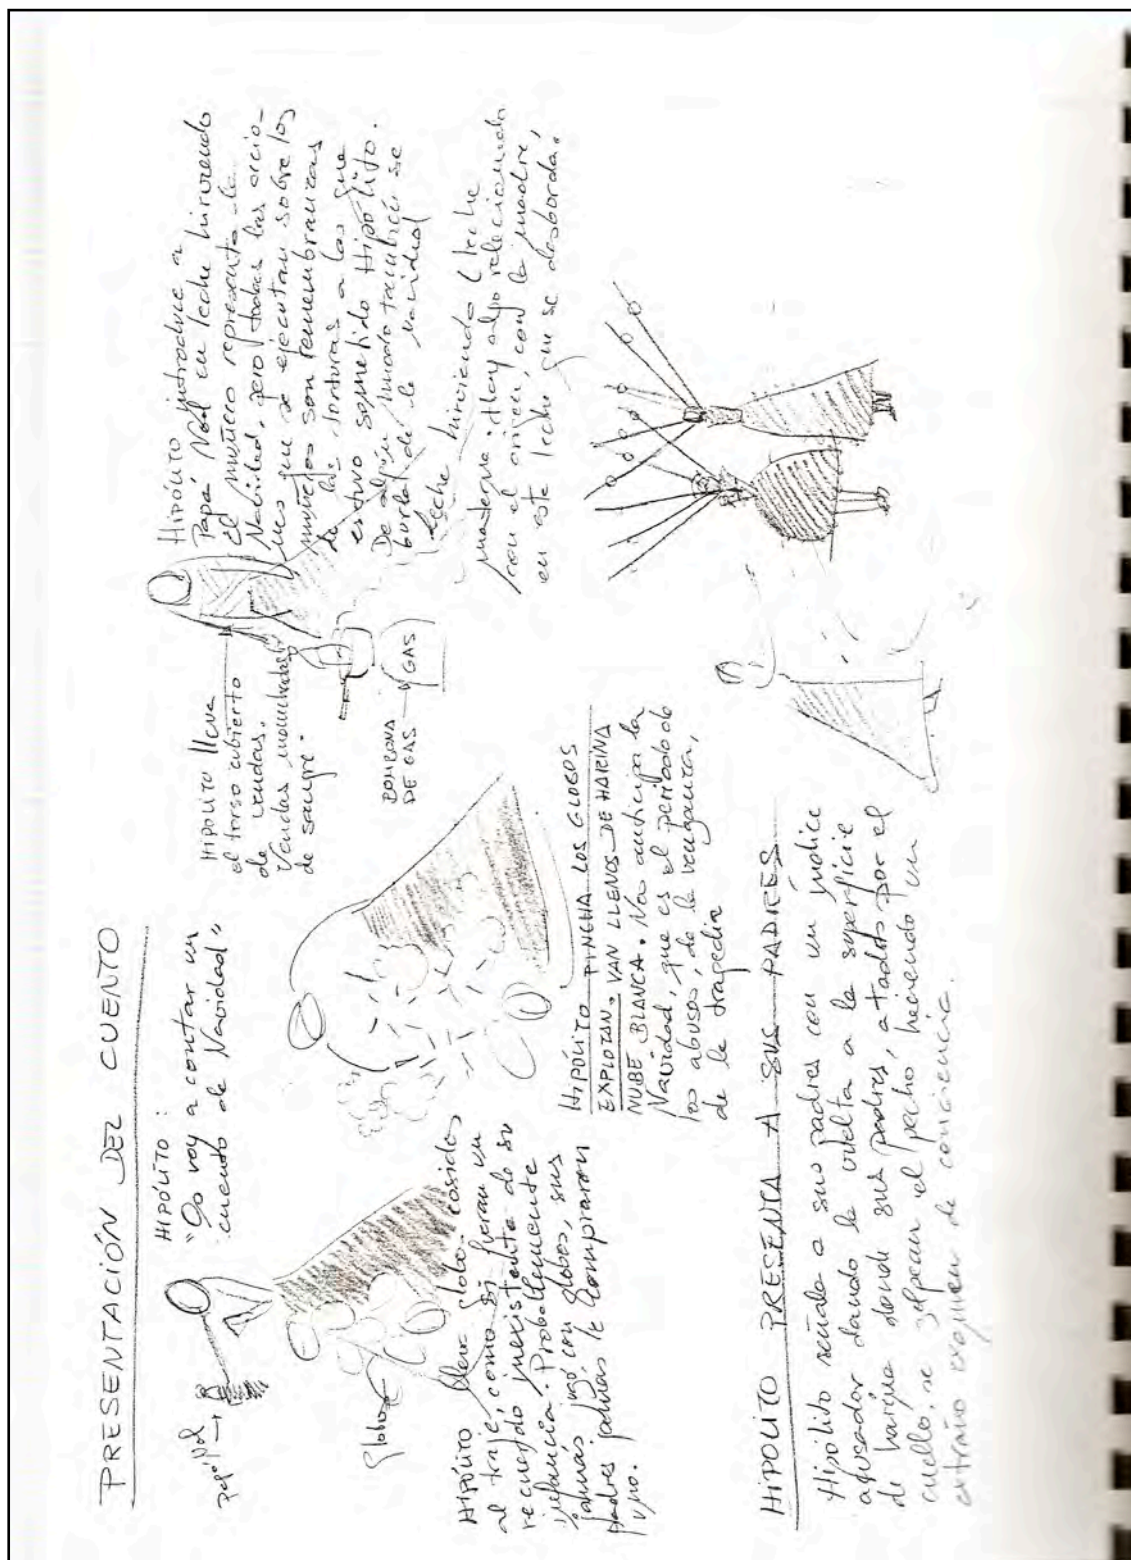 PRESENTACIÓN DEL CUENTO
HIPÓLITO:
"Os voy a contar un
cuento de Navidad"
papá Nöel
globos
HIPÓLITO lleva globos cosidos
al traje, como si fueran un
recuerdo inexistente de su
infancia. Probablemente
jamás jugó con globos, sus
padres jamás le compraron
uno.
HIPÓLITO PINCHA LOS GLOBOS
EXPLOTAN. VAN LLENOS DE HARINA
NUBE BLANCA. Nos anticipa la
Navidad, que es el periodo de
los abusos, de la venganza,
de la tragedia
HIPÓLITO lleva
el torso cubierto
de vendas.
Vendas manchadas
de sangre.
BOMBONA
DE GAS
GAS
HIPÓLITO introduce a
Papá Nöel en leche hirviendo
El muñeco representa la
Navidad, pero todas las accio-
nes que se ejecutan sobre los
muñecos son remembranzas
de las torturas a las que
estuvo sometido Hipólito.
De algún modo también se
burla de la navidad
leche hirviendo (leche
materna. Hay algo relacionado
con el origen, con la madre,
en esta leche que se desborda.
HIPÓLITO PRESENTA A SUS PADRES
Hipólito señala a sus padres con un índice
acusador dando la vuelta a la superficie
de harina donde sus padres, atados por el
cuello, se golpean el pecho haciendo un
extraño examen de conciencia.